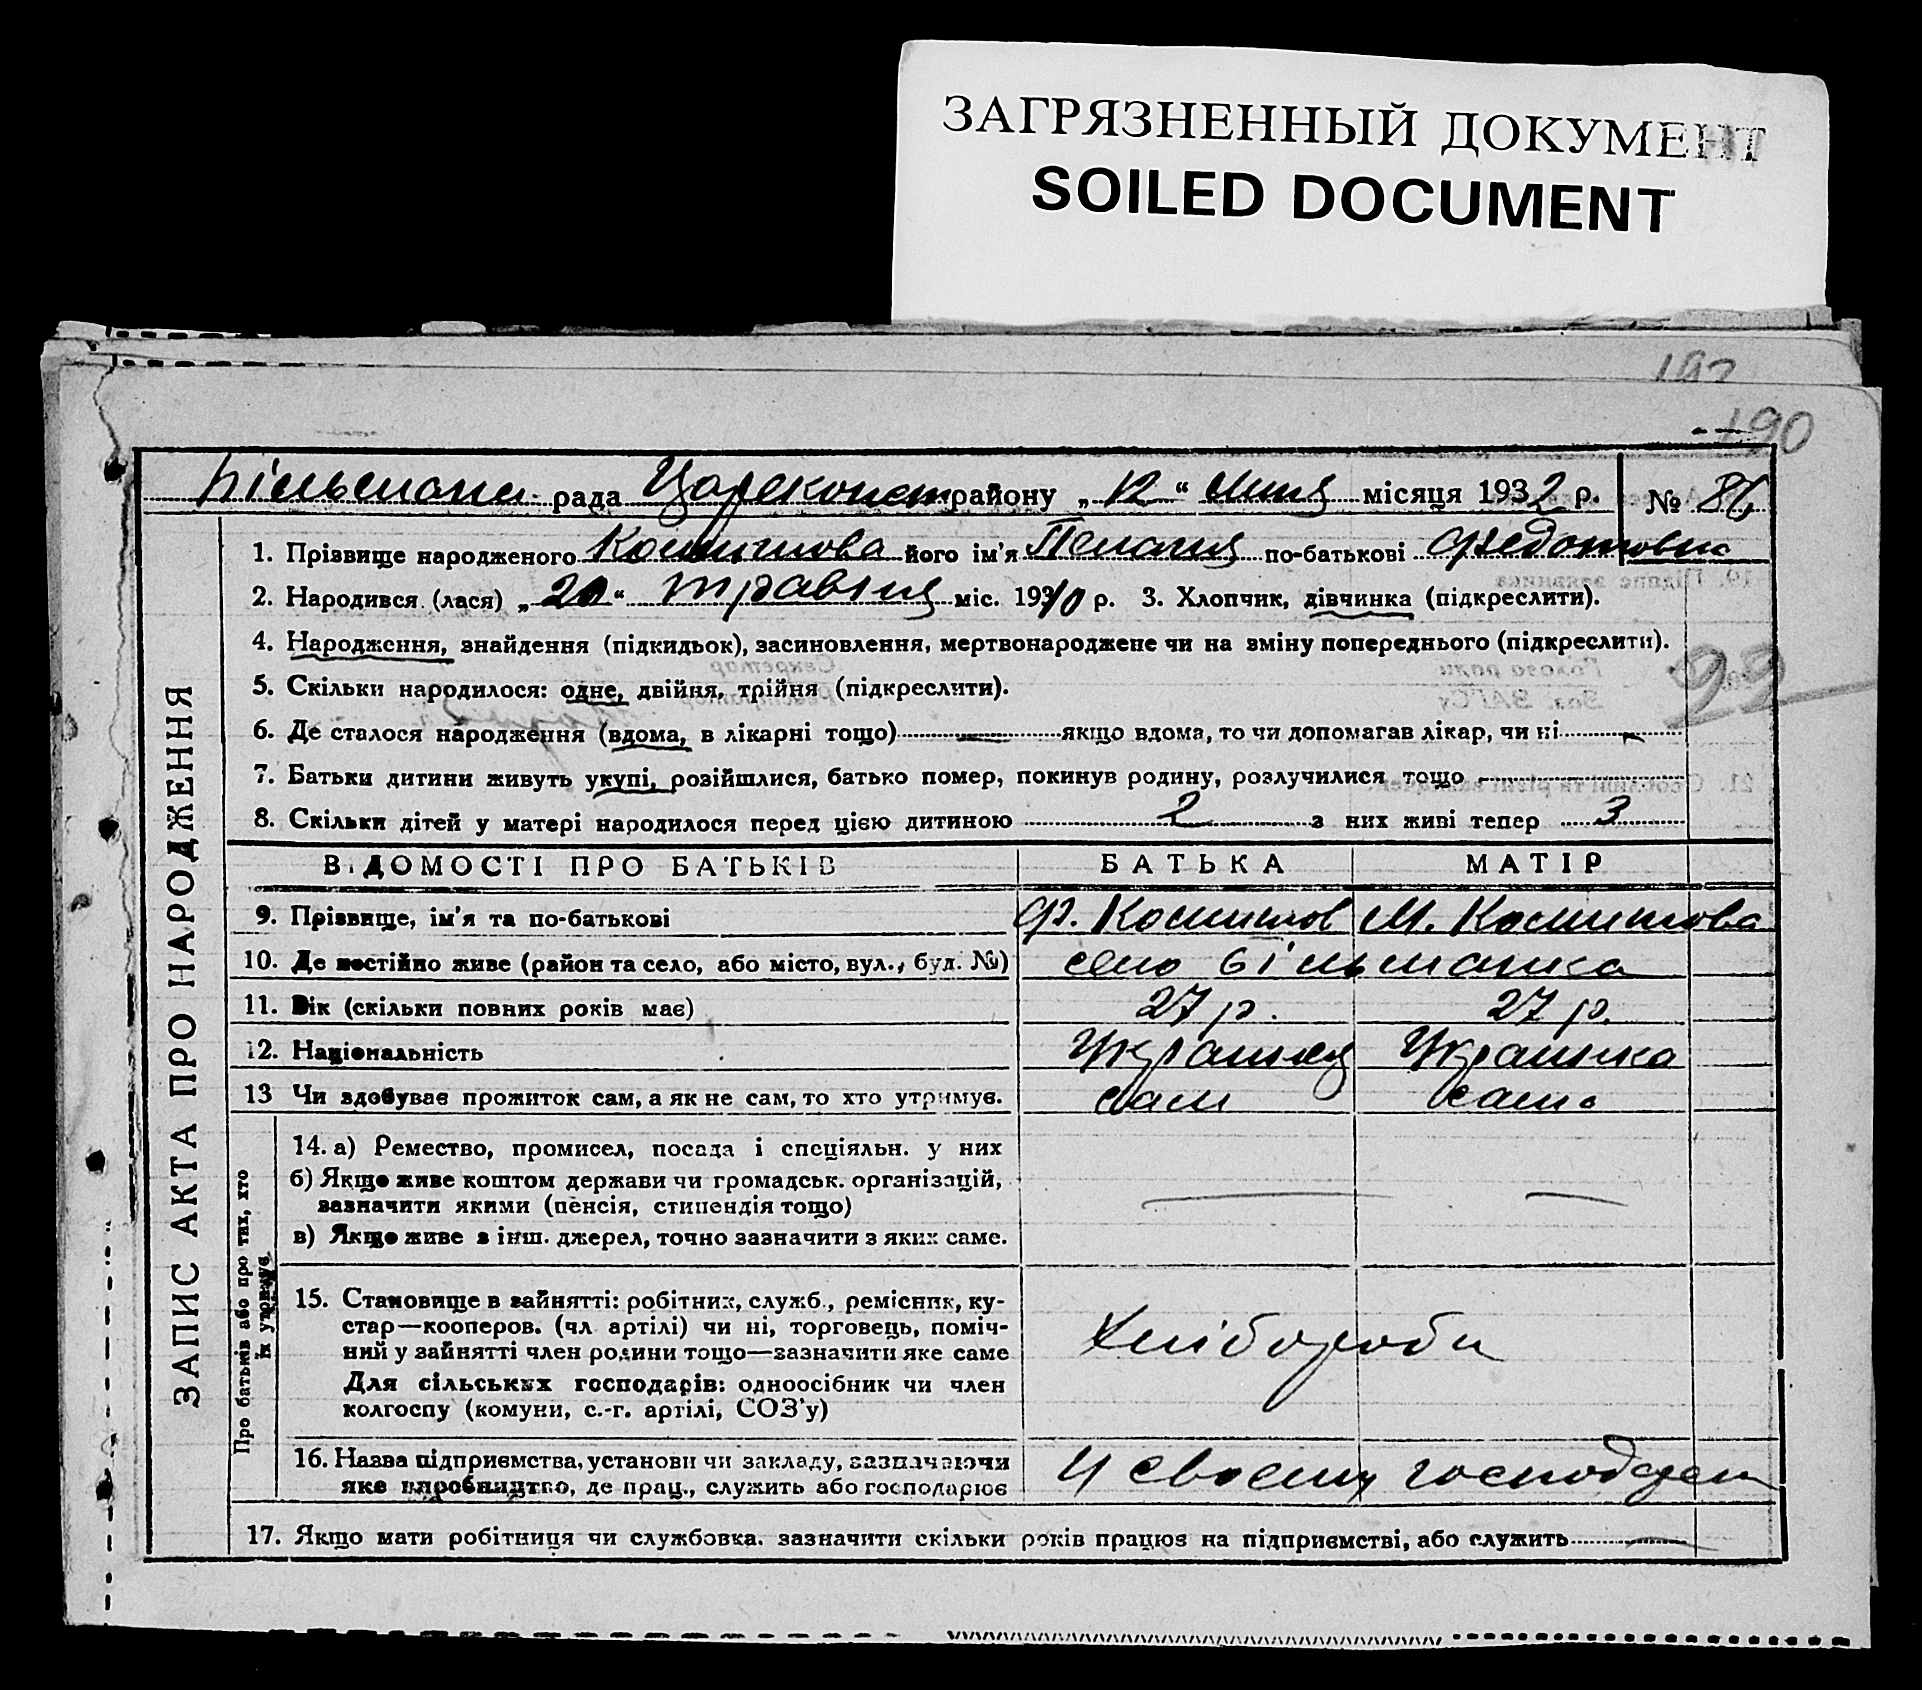 ЗАГРЯЗНЕННЫЙ ДОКУМЕНТ
SOILED DOCUMENT
192
190
Більмань рада Царекопст району „12“ липня місяця 1932 р. № 86
1. Прізвище народженого його ім'я Пелагия по-батькові Федотовна
2. Народився (лася) „20“ травня міс. 19 р. 3. Хлопчик, дівчинка (підкреслити).
4. Народження, знайдення (підкидьок), засиновлення, мертвонароджене чи на зміну попереднього (підкреслити).
5. Скільки народилося: одне, двійня, трійня (підкреслити).
99
6. Де сталося народження (вдома, в лікарні тощо) якщо вдома, то чи допомагав лікар, чи ні
7. Батьки дитини живуть укупі, розійшлися, батько помер, покинув родину, розлучилися тощо
8. Скільки дітей у матері народилося перед цією дитиною 2 з них живі тепер 3
ЗАПИС АКТА ПРО НАРОДЖЕННЯ
ВІДОМОСТІ ПРО БАТЬКІВ БАТЬКА МАТІР
9. Прізвище, ім'я та по-батькові Ф. М.
10. Де постійно живе (район та село, або місто, вул., буд. №) село Більманка
11. Вік (скільки повних років має) 27 р. 27 р.
12. Національність Українец Українка
13 Чи здобуває прожиток сам, а як не сам, то хто утримує. сам сама
Про батьків або про тих, хто
їх утримує
14. а) Ремество, промисел, посада і спеціяльн. у них
б) Якщо живе коштом держави чи громадськ. організацій,
зазначити якими (пенсія, стипендія тощо)
в) Якщо живе з інш. джерел, точно зазначити з яких саме.
15. Становище в зайнятті: робітник, служб., ремісник, ку-
стар—кооперов. (чл артілі) чи ні, торговець, поміч-
ний у зайнятті член родини тощо—зазначити яке саме
Для сільських господарів: одноосібник чи член
колгоспу (комуни, с.-г. артілі, СОЗ'у)
Хлібороби
16. Назва підприємства, установи чи закладу, зазначаючи
яке виробництво, де прац., служить або господарює
У своему господарст
17. Якщо мати робітниця чи службовка, зазначити скільки років працює на підприємстві, або служить